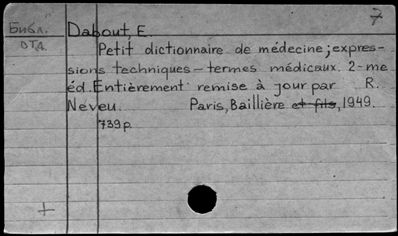 7
Библ.
Dabout, E.
ОТД.
Petit dictionnaire de médecine; expres-
sions techniques – termes médicaux. 2-me
éd. Entièrement remise à jour par R.
Neveu. Paris, Baillière et fils, 1949.
739 p.
+